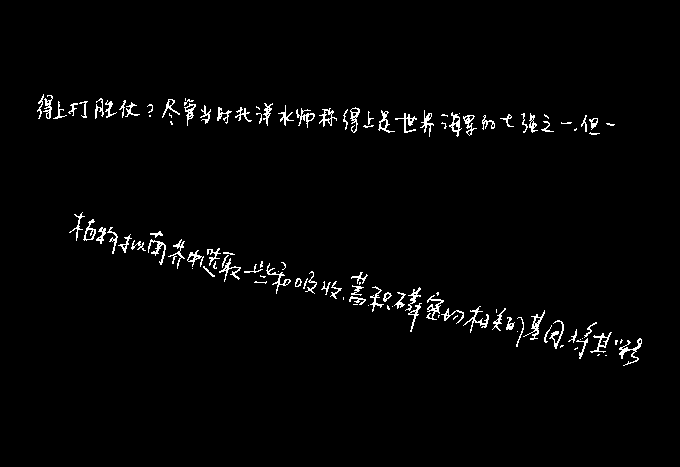 得上打胜仗？尽管当时北洋水师称得上是世界海军的七强之一，但一
植物拟南芥中选取一些和吸收、蓄积磷密切相关的基因，将其“移